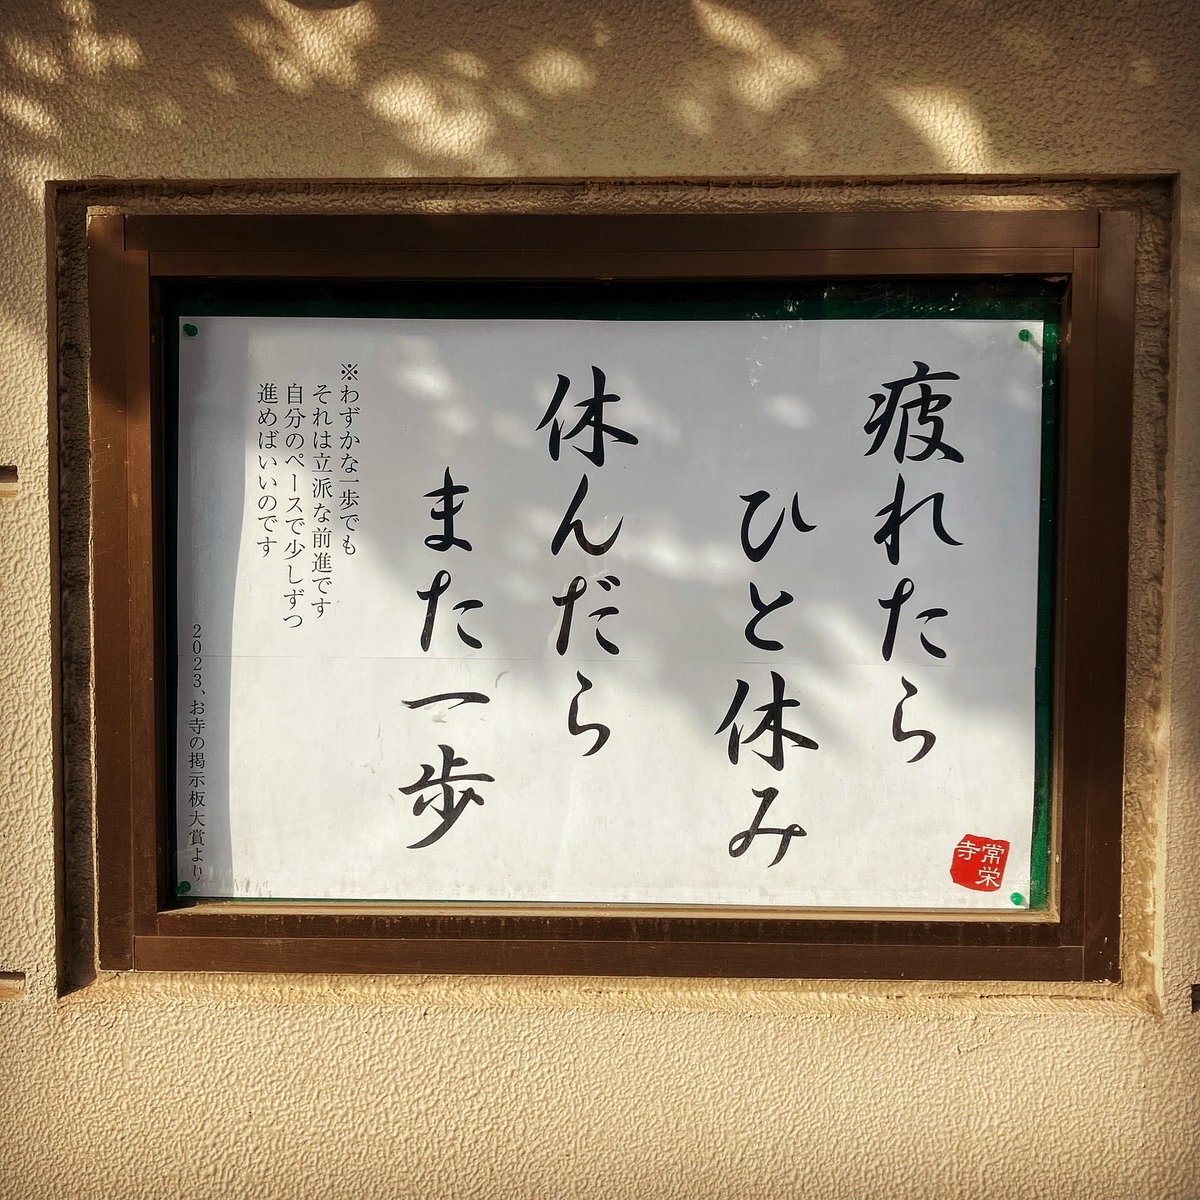 疲れたら
ひと休み
休んだら
また一歩
※わずかな一歩でも
それは立派な前進です
自分のペースで少しずつ
進めばいいのです
2023、お寺の掲示板大賞より
常栄
寺